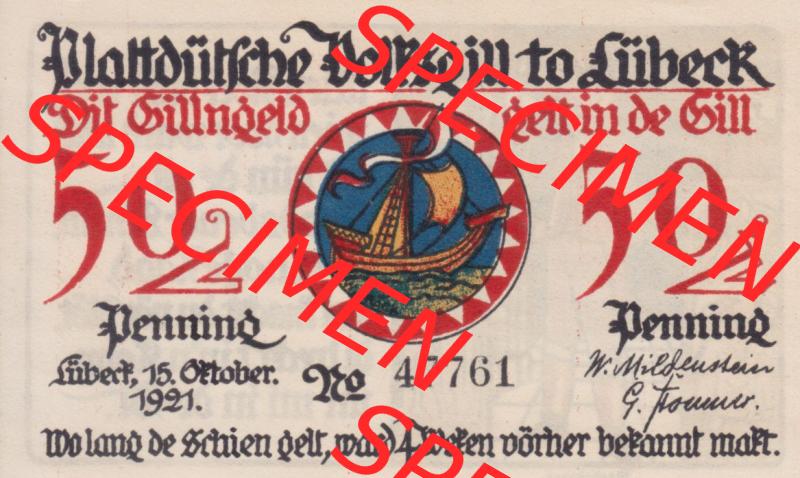 Plattdütsche Volksgill to Lübeck
Dit Gillngeld gelt in de Gill
50 50
Penning Penning
Lübeck, 15. Oktober. 1921.
No 761
W. Mildenstein
Wo lang de Schien gelt, ward 4 Weken vörher bekannt makt.
SPECIMEN
SPECIMEN